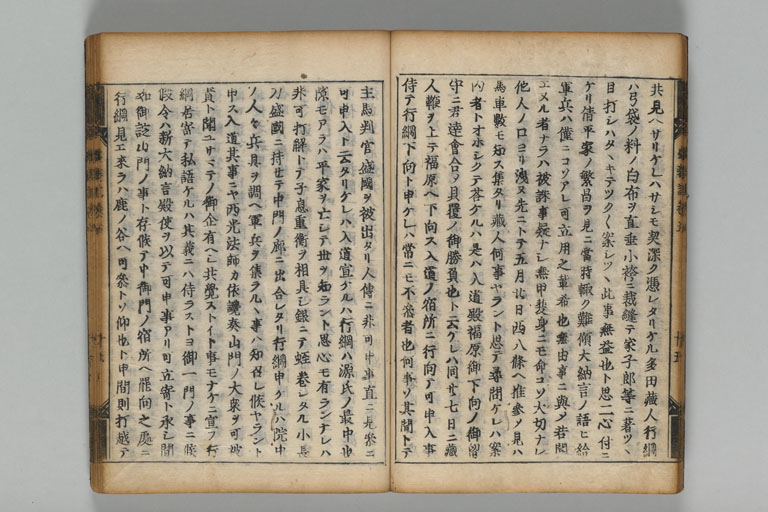 共見ヘサリケレハサシモ契深ク憑レタリケル多田蔵人行綱
ハ弓袋ノ料ノ白布ヲ直垂小袴ニ裁縫テ家子郎等ニ著セツヽ
目打シハタヽキテツクヽヽ案シツヽ此事無益也ト思二心付ニ
ケリ倩平家ノ繁昌ヲ見ニ當時輙ク難傾大納言ノ語ヒ給
軍兵ハ僅ニコソアレ可立用之輩希也無由事ニ與メ若聞
エメル者ナラハ被誅事疑ナシ無甲斐身ニモ命コソ大切ナレ
他人ノ口ヨリ洩ヌ先ニトテ五月廿日西八條ヘ推參メ見ハ
馬車數モ知ス集タリ蔵人何事ヤラント思テ尋問ケレハ案
内者トオホシクテ答ケルハ是ハ入道殿福原御下向ノ御留
守ニ君達會合ノ貝覆ノ御勝負也ト云ケレハ同廿七日ニ蔵
人鞭ヲ上テ福原ヘ下向ス入道ノ宿所ニ行向テ可申入事
侍テ行綱下向ト申ケレハ常ニモ不參者也何事ソ其聞トテ
主馬判官盛國ヲ被出タリ人傳ニ非可申事直ニ見參ニ
可申入ト云タリケレハ入道宣ケルハ行綱ハ源氏ノ最中也
隙モアラハ平家ヲ亡シテ世ヲ知ラント思心モ有ランナレハ
非可打解トテ子息重衡ヲ相具シ銀ニテ蛭巻シタル小長
刀盛國ニ持セテ中門ノ廊ニ出合レタリ行綱申ケルハ院中
ノ人々兵具ヲ調ヘ軍兵ヲ集ラルヽ事ハ知召レ候ヤラント
申ス入道其事ニヤ西光法師カ依讒奏山門ノ大衆ヲ可被
責ト聞ユサミテノ御企有ヘシ共覺ストイト事モナケニ宣フ行
綱居寄テ私語ケルハ其義ニハ侍ラストヨ御一門ノ事ニ候
假令ハ新大納言殿使ヲ以テ可申事アリ可立寄ト承シ間
如御諚山門ノ事ト存候テ中御門ノ宿所ヘ罷向之處ニ
行綱見エ来ラハ鹿ノ谷ヘ可參トソ仰也ト申間則打越テ